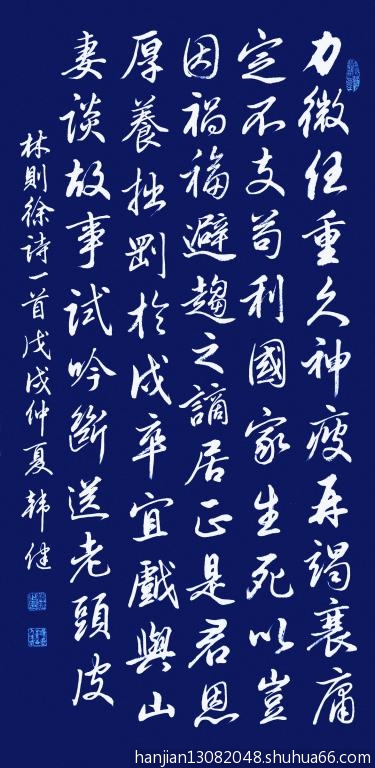 力微任重久神疲再竭衰庸
定不支苟利國家生死以豈
因禍福避趨之謫居正是君恩
厚養拙剛於戍卒宜戲與山
妻談故事試吟斷送老頭皮
林則徐詩一首戊戌仲夏韩健
hanjian13082048.shuhua66.com